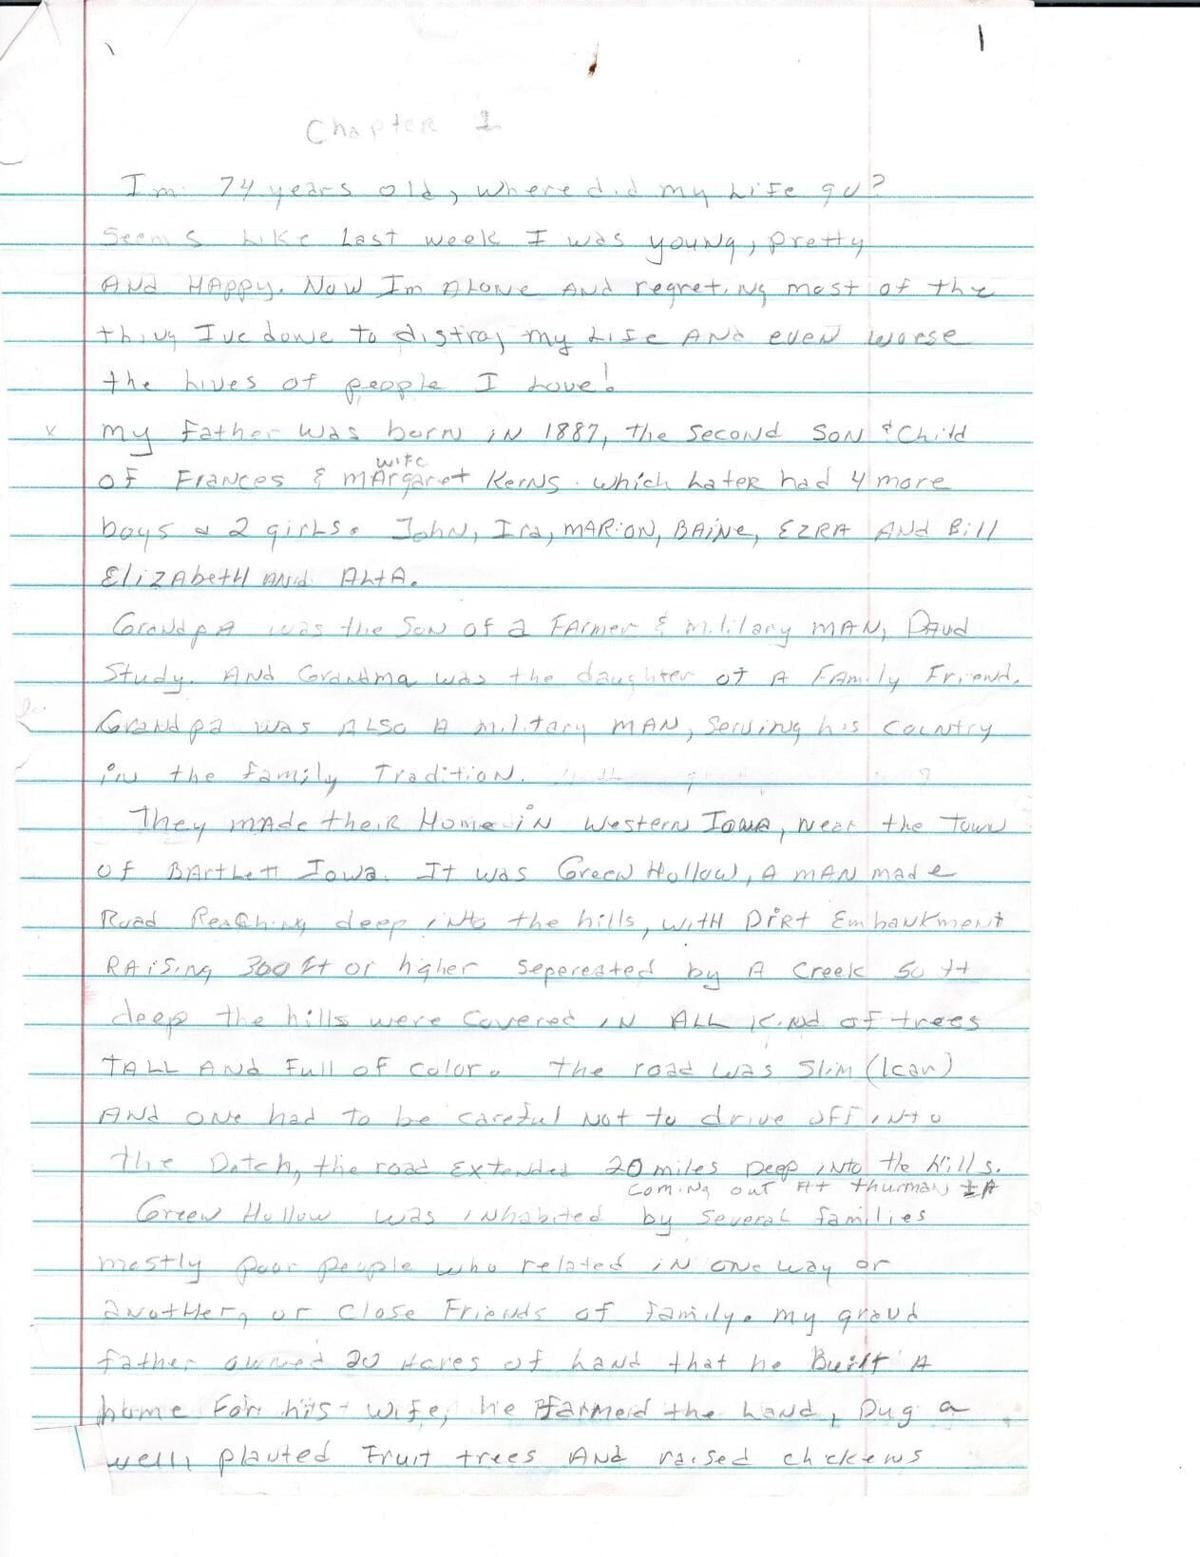 1
Chapter 1
Im 74 years old, where did my Life go?
Seems Like Last week I was young, pretty
And Happy. Now Im Alone And regreting most of the
thing Ive done to distroy my Life And even worse
the Lives of people I Love!
my father was born in 1887, the second son & Child
wife
of Frances & Margaret Kerns. which Later had 4 more
boys & 2 girls. John, Ira, Marion, Baine, Ezra And Bill
Elizabeth And Alta.
Grandpa was the Son of a Farmer & military man,
Study. And Grandma was the daughter of A Family Friend.
Grandpa was Also A military man, serving his Country
in the family Tradition.
They made their Home in Western Iowa, near the Town
of Bartlett Iowa. It was Green Hollow, A man made
Road Reaching deep into the hills, with Dirt Embankment
Raising 300 ft or higher sepereated by A Creek 50 ft
deep the hills were covered in ALL kind of trees
TALL And Full of color. The road was Slim (1car)
And one had to be careful not to drive off into
the Ditch, the road Extended 20 miles Deep into the hills.
Coming out At thurman IA
Green Hollow was inhabited by several families
mostly poor people who related in one way or
another, or Close Friends of family. my grand
father owned 20 Acres of Land that he Built A
home For his wife, he farmed the Land, Dug a
well, planted Fruit trees And raised chickens